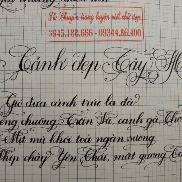 Hà Thuyên trung luyện nét chữ đẹp
0945.188.666 - 09344.86.400
Cảnh đẹp Tây H
Gió đưa cành trúc la đà
Tiếng chuông Trấn Vũ canh gà Thọ
Mịt mù khói toả ngàn sương
Nhịp chày Yên Thái, mặt gương Tây